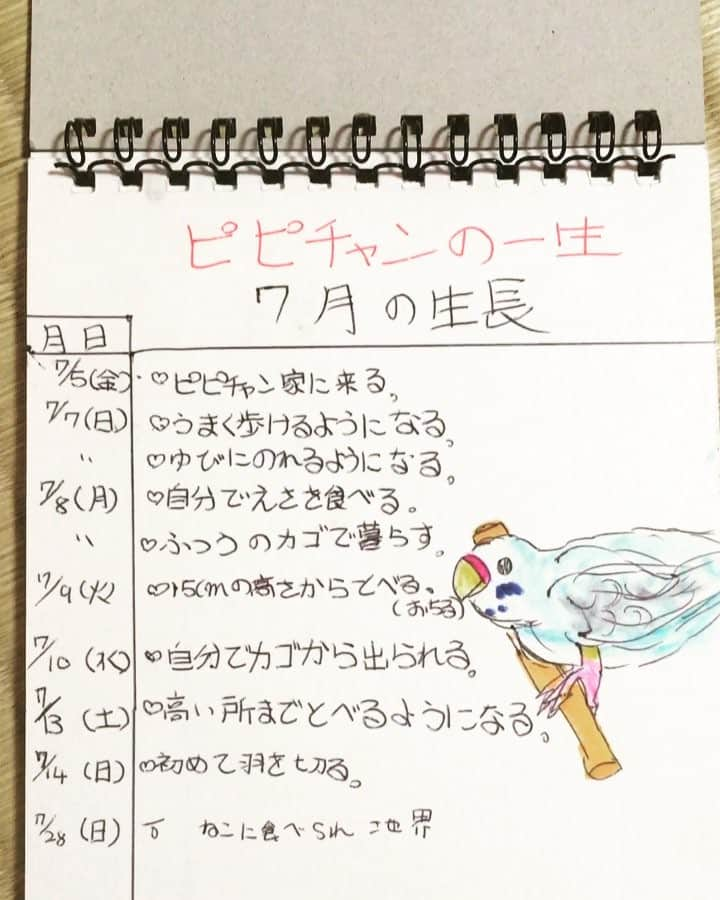 ピピチャンの一生
7月の生長
月日
7/5(金) ♡ピピチャン家に来る。
7/7(日) ♡うまく歩けるようになる。
〃 ♡ゆびにのれるようになる。
7/8(月) ♡自分でえさを食べる。
〃 ♡ふつうのカゴで暮らす。
7/9(火) ♡15cmの高さからとべる。
(おちる)
7/10(水) ♡自分でカゴから出られる。
7/13(土) ♡高い所までとべるようになる。
7/14(日) ♡初めて羽を切る。
7/28(日) ねこに食べられ 世界